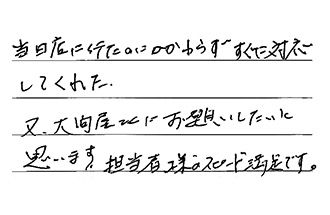 当日店に行たのにかかわらずすぐに対応
してくれた.
又、大向屋さんにお願いしたいと
思います。担当者様のスピード満足です。